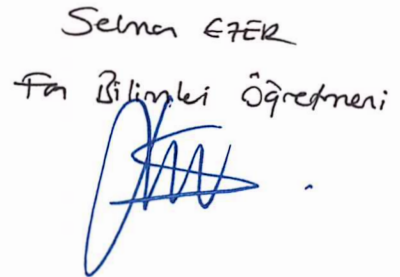 Selma EZER
Fen Bilimleri Öğretmeni